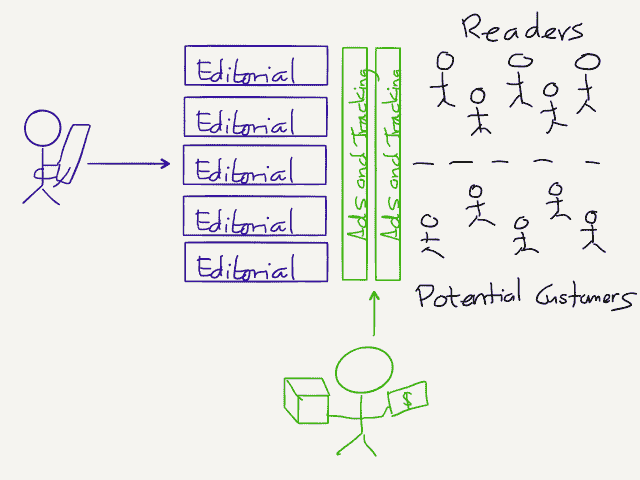 Readers
Editorial
Editorial
Editorial
Editorial
Editorial
Ads and Tracking
Ads and Tracking
Potential Customers
$